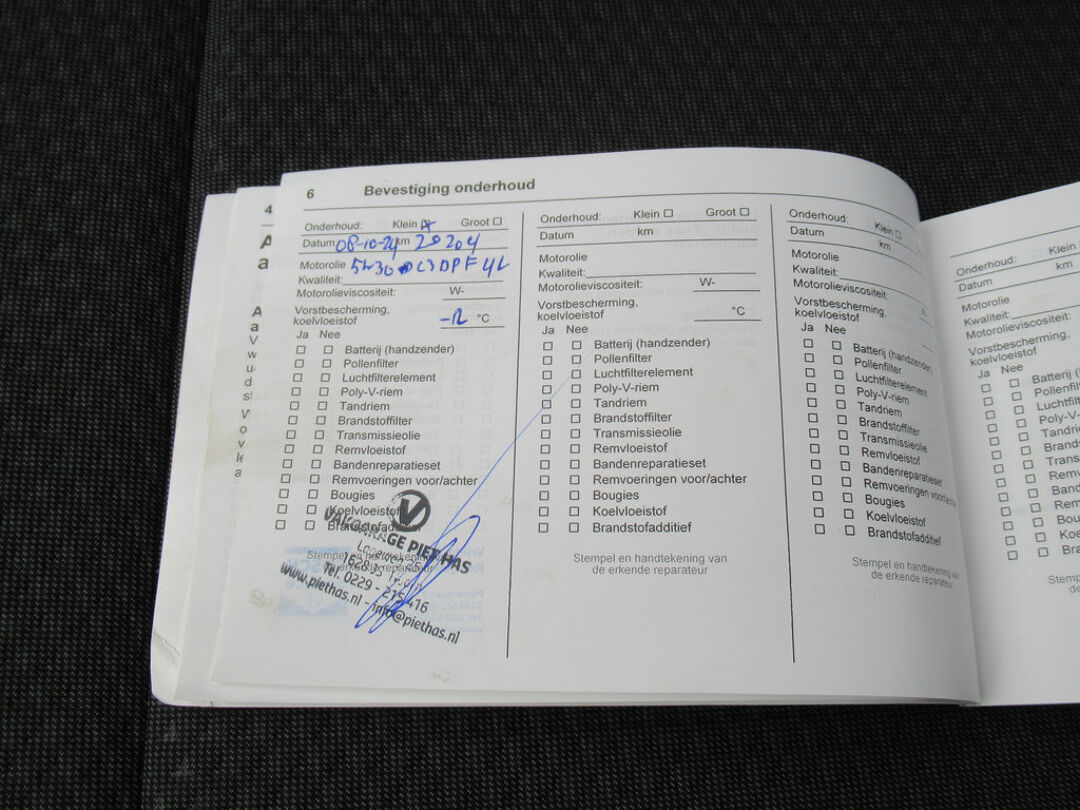 6 Bevestiging onderhoud
Onderhoud: Klein Groot
Datum 08-10-24 km 20204
Motorolie 5W30 C3DPF 4L
Kwaliteit:
Motorolieviscositeit: W-
Vorstbescherming,
koelvloeistof -12 °C
Ja Nee
Batterij (handzender)
Pollenfilter
Luchtfilterelement
Poly-V-riem
Tandriem
Brandstoffilter
Transmissieolie
Remvloeistof
Bandenreparatieset
Remvoeringen voor/achter
Bougies
Koelvloeistof
Brandstofadditief
Stempel en handtekening
de erkende reparateur
VAKGARAGE PIET HAS
1628
Tel. 0229 - 215416
www.piethas.nl - info@piethas.nl
Onderhoud: Klein Groot
Datum km
Motorolie
Kwaliteit:
Motorolieviscositeit: W-
Vorstbescherming,
koelvloeistof °C
Ja Nee
Batterij (handzender)
Pollenfilter
Luchtfilterelement
Poly-V-riem
Tandriem
Brandstoffilter
Transmissieolie
Remvloeistof
Bandenreparatieset
Remvoeringen voor/achter
Bougies
Koelvloeistof
Brandstofadditief
Stempel en handtekening van
de erkende reparateur
Onderhoud: Klein
Datum km
Motorolie
Kwaliteit:
Motorolieviscositeit:
Vorstbescherming,
koelvloeistof
Ja Nee
Batterij (handzender)
Pollenfilter
Luchtfilterelement
Poly-V-riem
Tandriem
Brandstoffilter
Transmissieolie
Remvloeistof
Bandenreparatieset
Remvoeringen voor/achter
Bougies
Koelvloeistof
Brandstofadditief
Stempel en handtekening van
de erkende reparateur
Onderhoud: Klein
Datum km
Motorolie
Kwaliteit:
Motorolieviscositeit:
Vorstbescherming,
koelvloeistof
Ja Nee
Batterij (
Pollenfil
Luchtfil
Poly-V-
Tandri
Brand
Trans
Remv
Band
Rem
Bou
Koe
Bra
Stemp
de
4
A
a
A
a
V
w
u
d
s
W
o
v
le
a